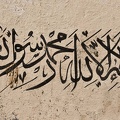 لا اله الا الله محمد رسول